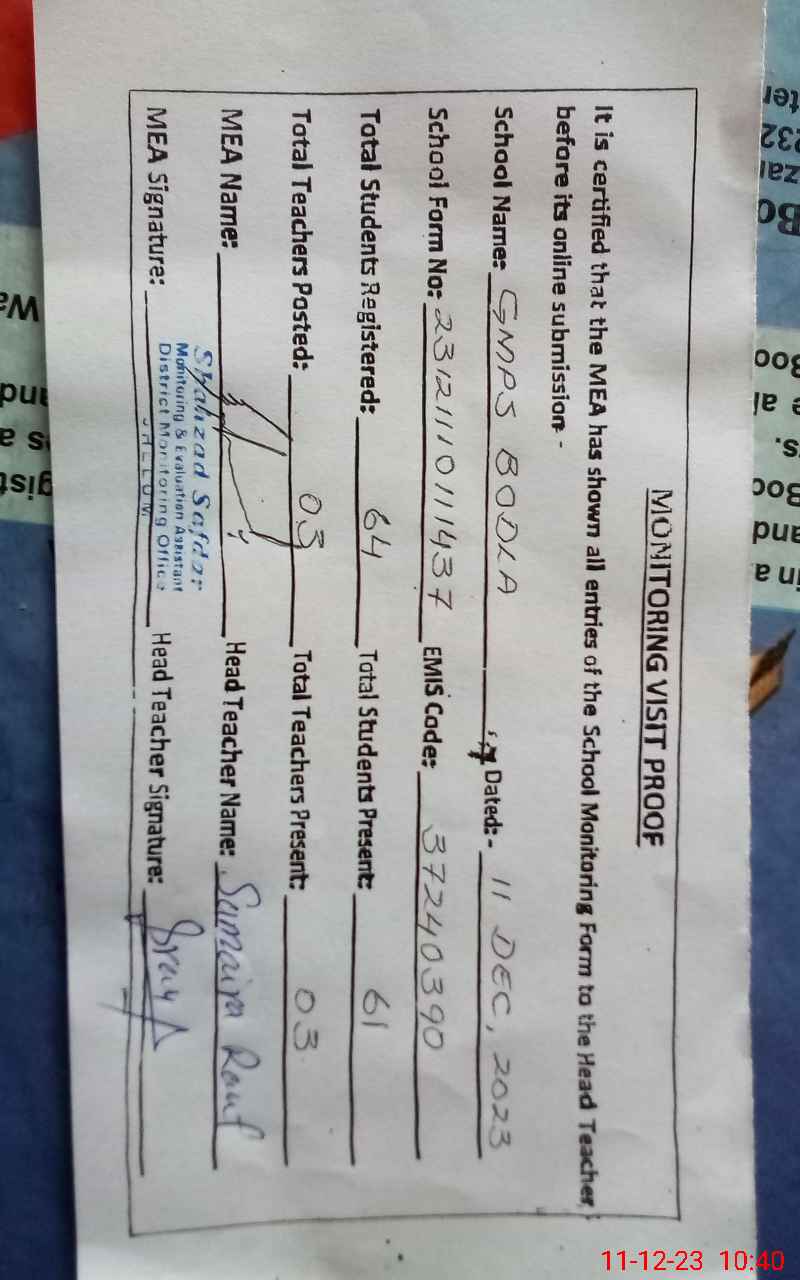 MONITORING VISIT PROOF
It is certified that the MEA has shown all entries of the School Monitoring Form to the Head Teacher
before its online submission -
School Name: GMPS BODLA Dated:- 11 DEC, 2023
School Form No: 231211101111437 EMIS Code: 37240390
Total Students Registered: 64 Total Students Present: 61
Total Teachers Posted: 03 Total Teachers Present: 03
MEA Name: Head Teacher Name: Sumaira Rauf
Shahzad Safdar
Monitoring & Evaluation Assistant
District Monitoring Office
JHELUM
MEA Signature: Head Teacher Signature:
11-12-23 10:40